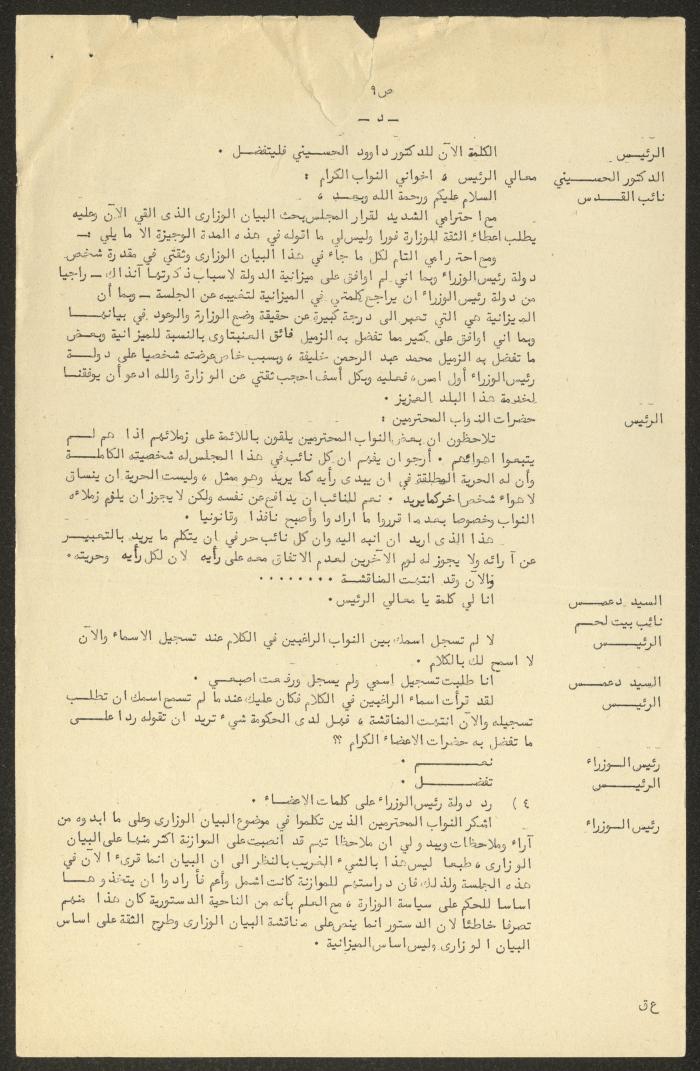 ص ٩
— د —
الرئيـــس الكلمة الآن للدكتور داوود الحسيني فليتفضل ٠
الدكتور الحســـيني معالي الرئيس ، اخواني النواب الكرام :
نائب القـــدس السلام عليكم ورحمة الله وبعـد ،
مع احترامي الشديد لقرار المجلس بحث البيان الوزارى الذى القي الآن وعليه
يطلب اعطاء الثقة للوزارة فورا وليس لي ما اقوله في هذه المدة الوجيزة الا ما يلي :ـ
ومع احترامي التام لكل ما جاء في هذا البيان الوزارى وثقتي في مقدرة شخص
دولة رئيس الوزراء وبما اني لم اوافق على ميزانية الدولة لاسباب ذكرتهـا آنذاك ــ راجيا
من دولة رئيس الوزراء ان يراجع كلمتي في الميزانية لتغيبه عن الجلسة ــ وبما أن
الميزانية هي التي تعبر الى درجة كبيرة عن حقيقة وضع الوزارة والوعود في بيانهـــا
وبما اني اوافق على كثير مما تفضل به الزميل فائق العنبتاوى بالنسبة للميزانية وبعـض
ما تفضل به الزميل محمد عبد الرحمن خليفة ، وبسبب خاص عرضته شخصيا على دولـــة
رئيس الوزراء أول امس، فعليه وبكل أسف احجب ثقتي عن الوزارة والله ادعو أن يوفقنـا
لخدمة هذا البلد العزيز ٠
الرئيس حضرات النواب المحترمين :
تلاحظون ان بعض النواب المحترمين يلقون باللائمة على زملائهم اذا هم لـــم
يتبعوا اهوائهم ٠ أرجو ان يفهم ان كل نائب في هذا المجلس له شخصيته الكاملـــة
وأن له الحرية المطلقة في ان يبدى رأيه كما يريد وهو ممثل ، وليست الحرية ان ينساق
لاهواء شخص اخر كما يريد ٠ نعم للنائب ان يدافع عن نفسه ولكن لا يجوز ان يلوم زملاءه
النواب وخصوصا بعد ما قرروا ما ارادوا وأصبح نافذا وقانونيا ٠
هذا الذى اريد ان انبه اليه وان كل نائب حر في ان يتكلم ما يريد بالتعبيـــر
عن آرائه ولا يجوز له لوم الآخرين لعدم الاتفاق معه على رأيه لان لكل رأيه وحريته٠
والآن وقد انتهت المناقشة ٠٠٠٠٠٠٠٠
السيد دعمــــس انا لي كلمة يا معالي الرئيس٠
نائب بيت لحــم
الرئيـــــس لا لم تسجل اسمك بين النواب الراغبين في الكلام عند تسجيل الاسماء والآن
لا اسمح لك بالكلام ٠
السيد دعمــــس انا طلبت تسجيل اسمي ولم يسجل ورفعت اصبعـــي ٠
الرئيـــــس لقد قرأت اسماء الراغبين في الكلام فكان عليك عندما لم تسمع اسمك ان تطلـــب
تسجيله والآن انتهت المناقشة ، فهـل لدى الحكومة شيء تريد ان تقوله ردا علـــى
ما تفضل به حضرات الاعضاء الكرام ؟؟
رئيس الـوزراء نعــــــم ٠
الرئيـــــس تفضــــــل ٠
٤ ) رد دولة رئيس الوزراء على كلمات الاعضــاء ٠
رئيس الـوزراء اشكر النواب المحترمين الذين تكلموا في موضوع البيان الوزارى وعلى ما ابدوه من
آراء وملاحظات ويبدو لي ان ملاحظاتهم قد انصبت على الموازنة اكثر منهـا على البيان
الوزارى ، طبعا ليس هذا بالشيء الغريب بالنظر الى ان البيان انما قرىء الآن في
هذه الجلسة ولذلك فان دراستهم للموازنة كانت اشمل وأعم فأرادوا ان يتخذوهـــا
اساسا للحكم على سياسة الوزارة ، مع العلم بأنه من الناحية الدستورية كان هذا منهم
تصرفا خاطئا لان الدستور انما ينص على مناقشة البيان الوزارى وطرح الثقة على اساس
البيان الوزارى وليس اساس الميزانية ٠
ع ق